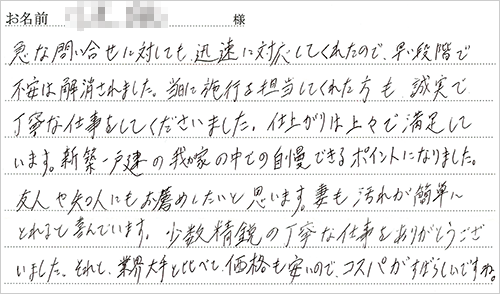 お名前 様
急な問い合せに対しても、迅速に対応してくれたので、早い段階で
不安は解消されました。当日に施行を担当してくれた方も誠実で
丁寧な仕事をしてくださいました。仕上がりは上々で満足して
います。新築一戸建の我が家の中での自慢できるポイントになりました。
友人や知人にもお薦めしたいと思います。妻も汚れが簡単に
とれると喜んでいます。少数精鋭の丁寧な仕事をありがとうござ
いました。それと、業界大手と比べて、価格も安いので、コスパがすばらしいですね。